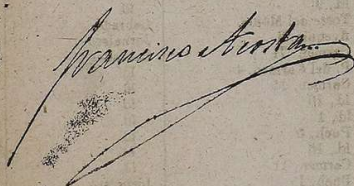 Francisco Acosta